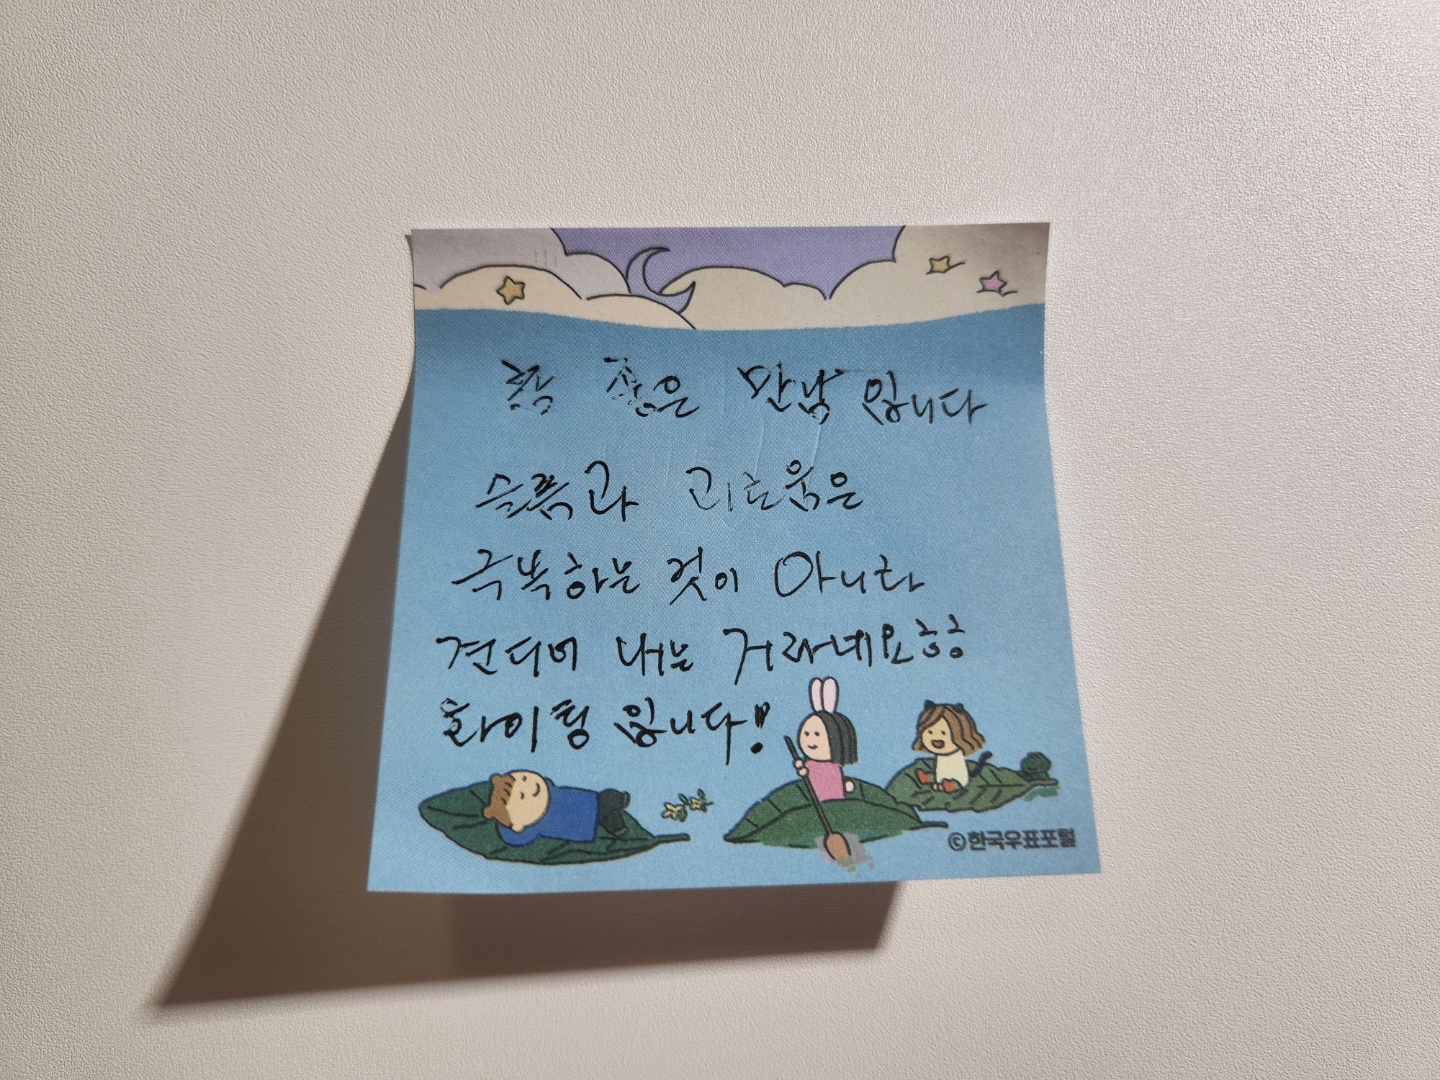 좋은 만남 입니다
슬픔과 괴로움은
극복하는 것이 아니라
견디어 내는 거라네요ㅎㅎ
화이팅 입니다!
©한국우표포털